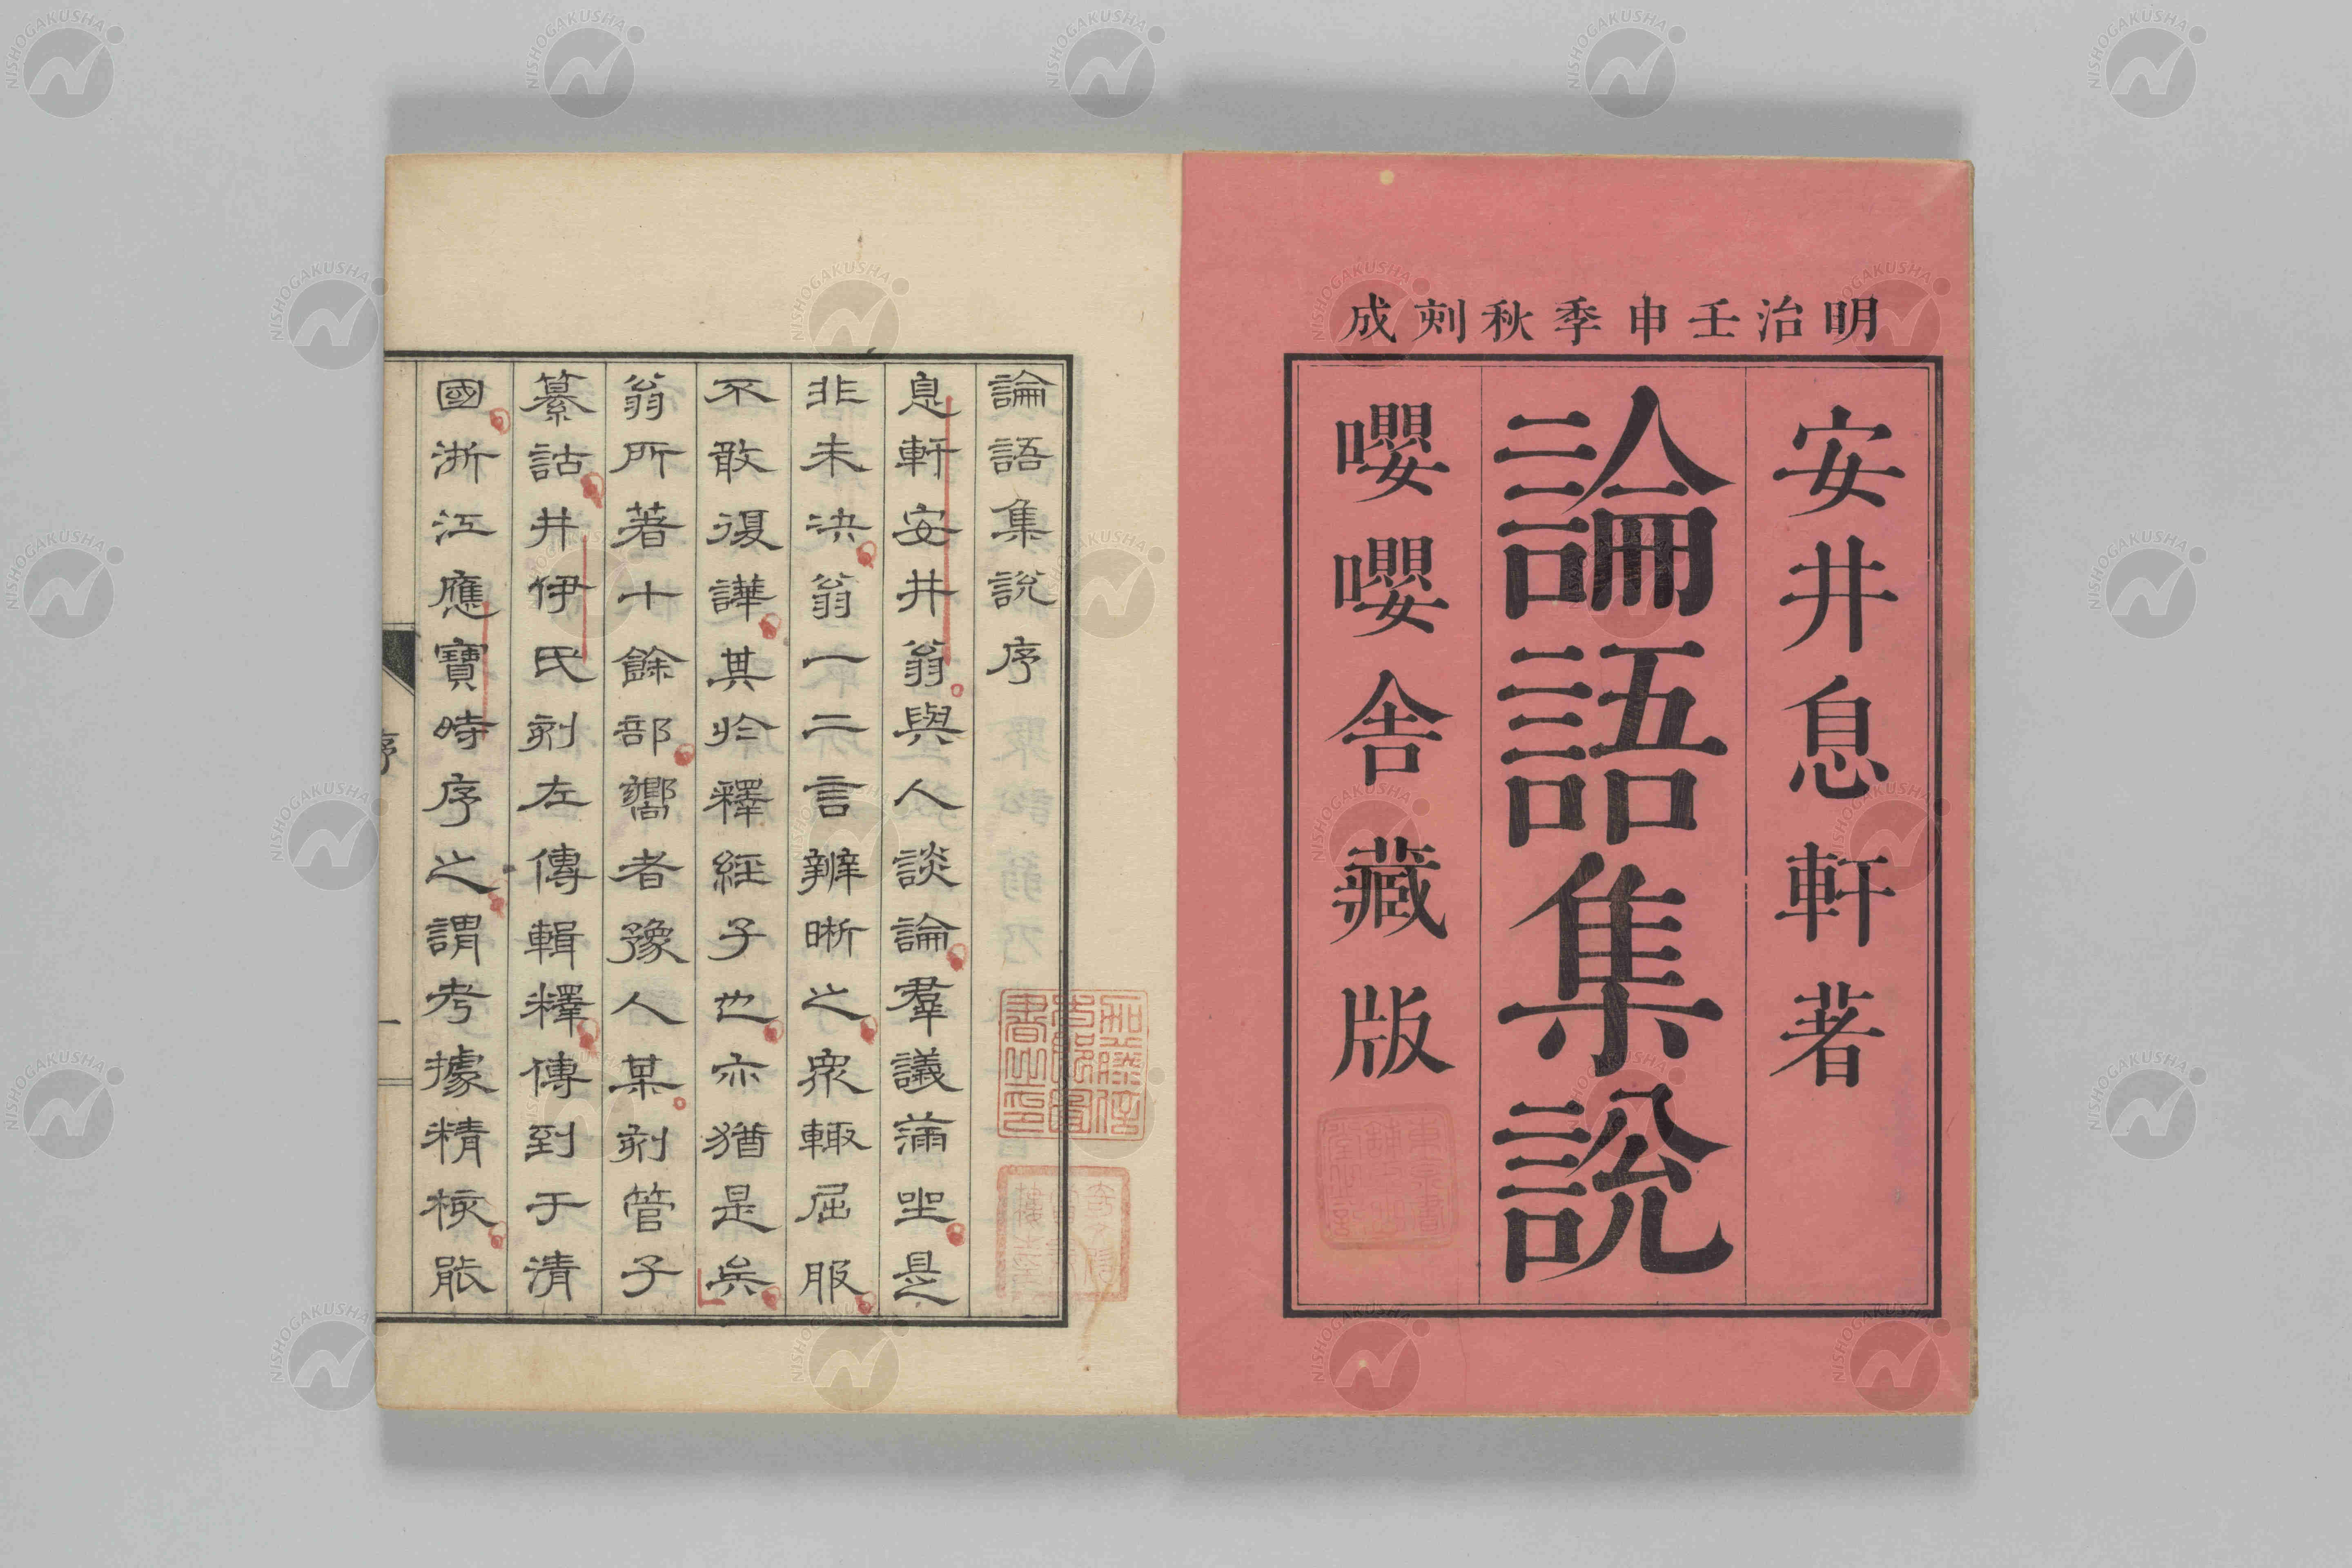 明治壬申季秋刻成
安井息軒著
論語集說
嚶嚶舍藏版
論語集說序
息軒安井翁與人談論羣議滿坐是
非未决翁一二言辨晰之衆輙屈服
不敢復譁其於釋經子也亦猶是矣
翁所著十餘部嚮者豫人某刻管子
纂詁井伊氏刻左傳輯釋傳到于清
國浙江應寶時序之謂考據精核能
序
一
NISHOGAKUSHA